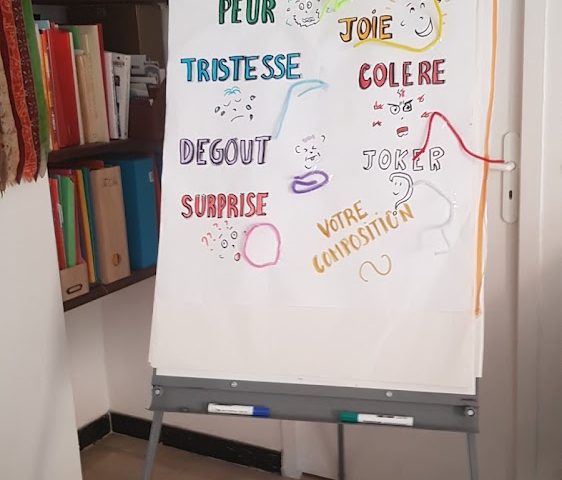 PEUR
JOIE
TRISTESSE
COLERE
DEGOUT
JOKER
SURPRISE
VOTRE
COMPOSITION